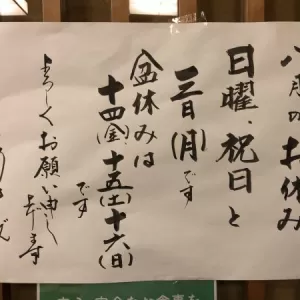 八月のお休み
日曜、祝日と
三日(月)です
盆休みは
十四(金)十五(土)十六(日)
です
よろしくお願い申し上げます